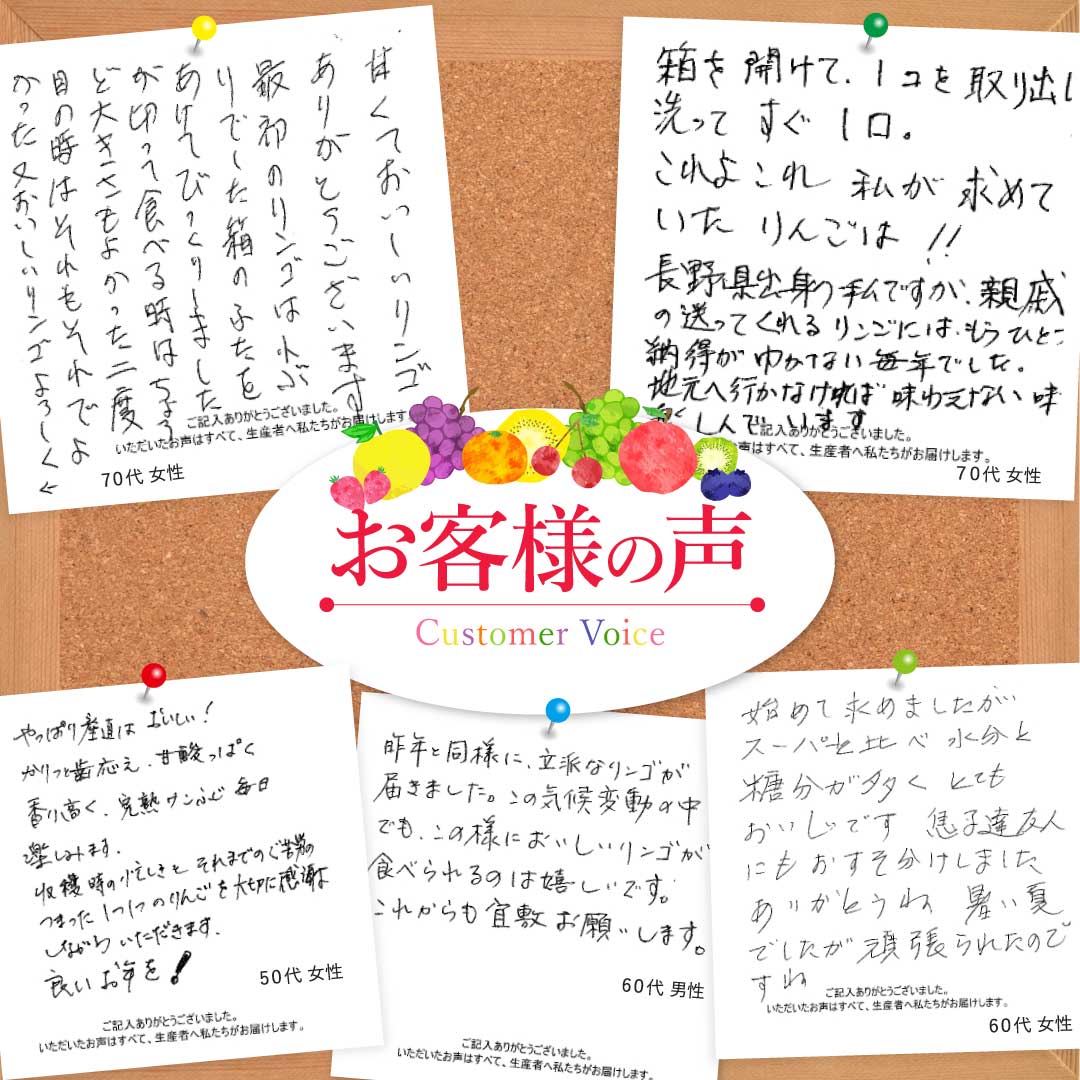 甘くておいしいリンゴ
ありがとうございます
最初のリンゴは小ぶ
りでした箱のふたを
あけてびっくりしました
が切って食べる時はちょう
ど大きさもよかった二度
目の時はそれもそれでよ
かった又おいしいリンゴよろしく
ご記入ありがとうございました。
いただいたお声はすべて、生産者へ私たちがお届けします
70代 女性
箱を開けて、1コを取り出し
洗って すぐ 1口。
これよこれ 私が求めて
いた りんごは !!
長野県出身の私ですが、親戚
の送ってくれるリンゴには、もうひとつ
納得がゆかない毎年でした。
地元へ行かなければ味わえない味
しんでいます
ご記入ありがとうございました。
お声はすべて、生産者へ私たちがお届けします。
70代 女性
お客様の声
Customer Voice
やっぱり産直は おいしい!
かりっと歯応え、甘酸っぱく
香り高く、完熟サンふじ 毎日
楽しみます。
収穫時の忙しさと それまでのご苦労の
つまった1つ1つのりんごを大切に感謝
しながら いただきます。
良いお年を!
50代 女性
ご記入ありがとうございました。
いただいたお声はすべて、生産者へ私たちがお届けします。
昨年と同様に、立派なリンゴが
届きました。この気候変動の中
でも、この様においしいリンゴが
食べられるのは嬉しいです。
これからも宜敷お願いします。
60代 男性
ご記入ありがとうございました。
いただいたお声はすべて、生産者へ私たちがお届けします。
始めて求めましたが
スーパーと比べ 水分と
糖分が多く とても
おいしいです 息子達友人
にもおすそ分けしました
ありがとうね 暑い夏
でしたが頑張られたので
すね
ご記入ありがとうございました。
いただいたお声はすべて、生産者へ私たちがお届けします。
60代 女性